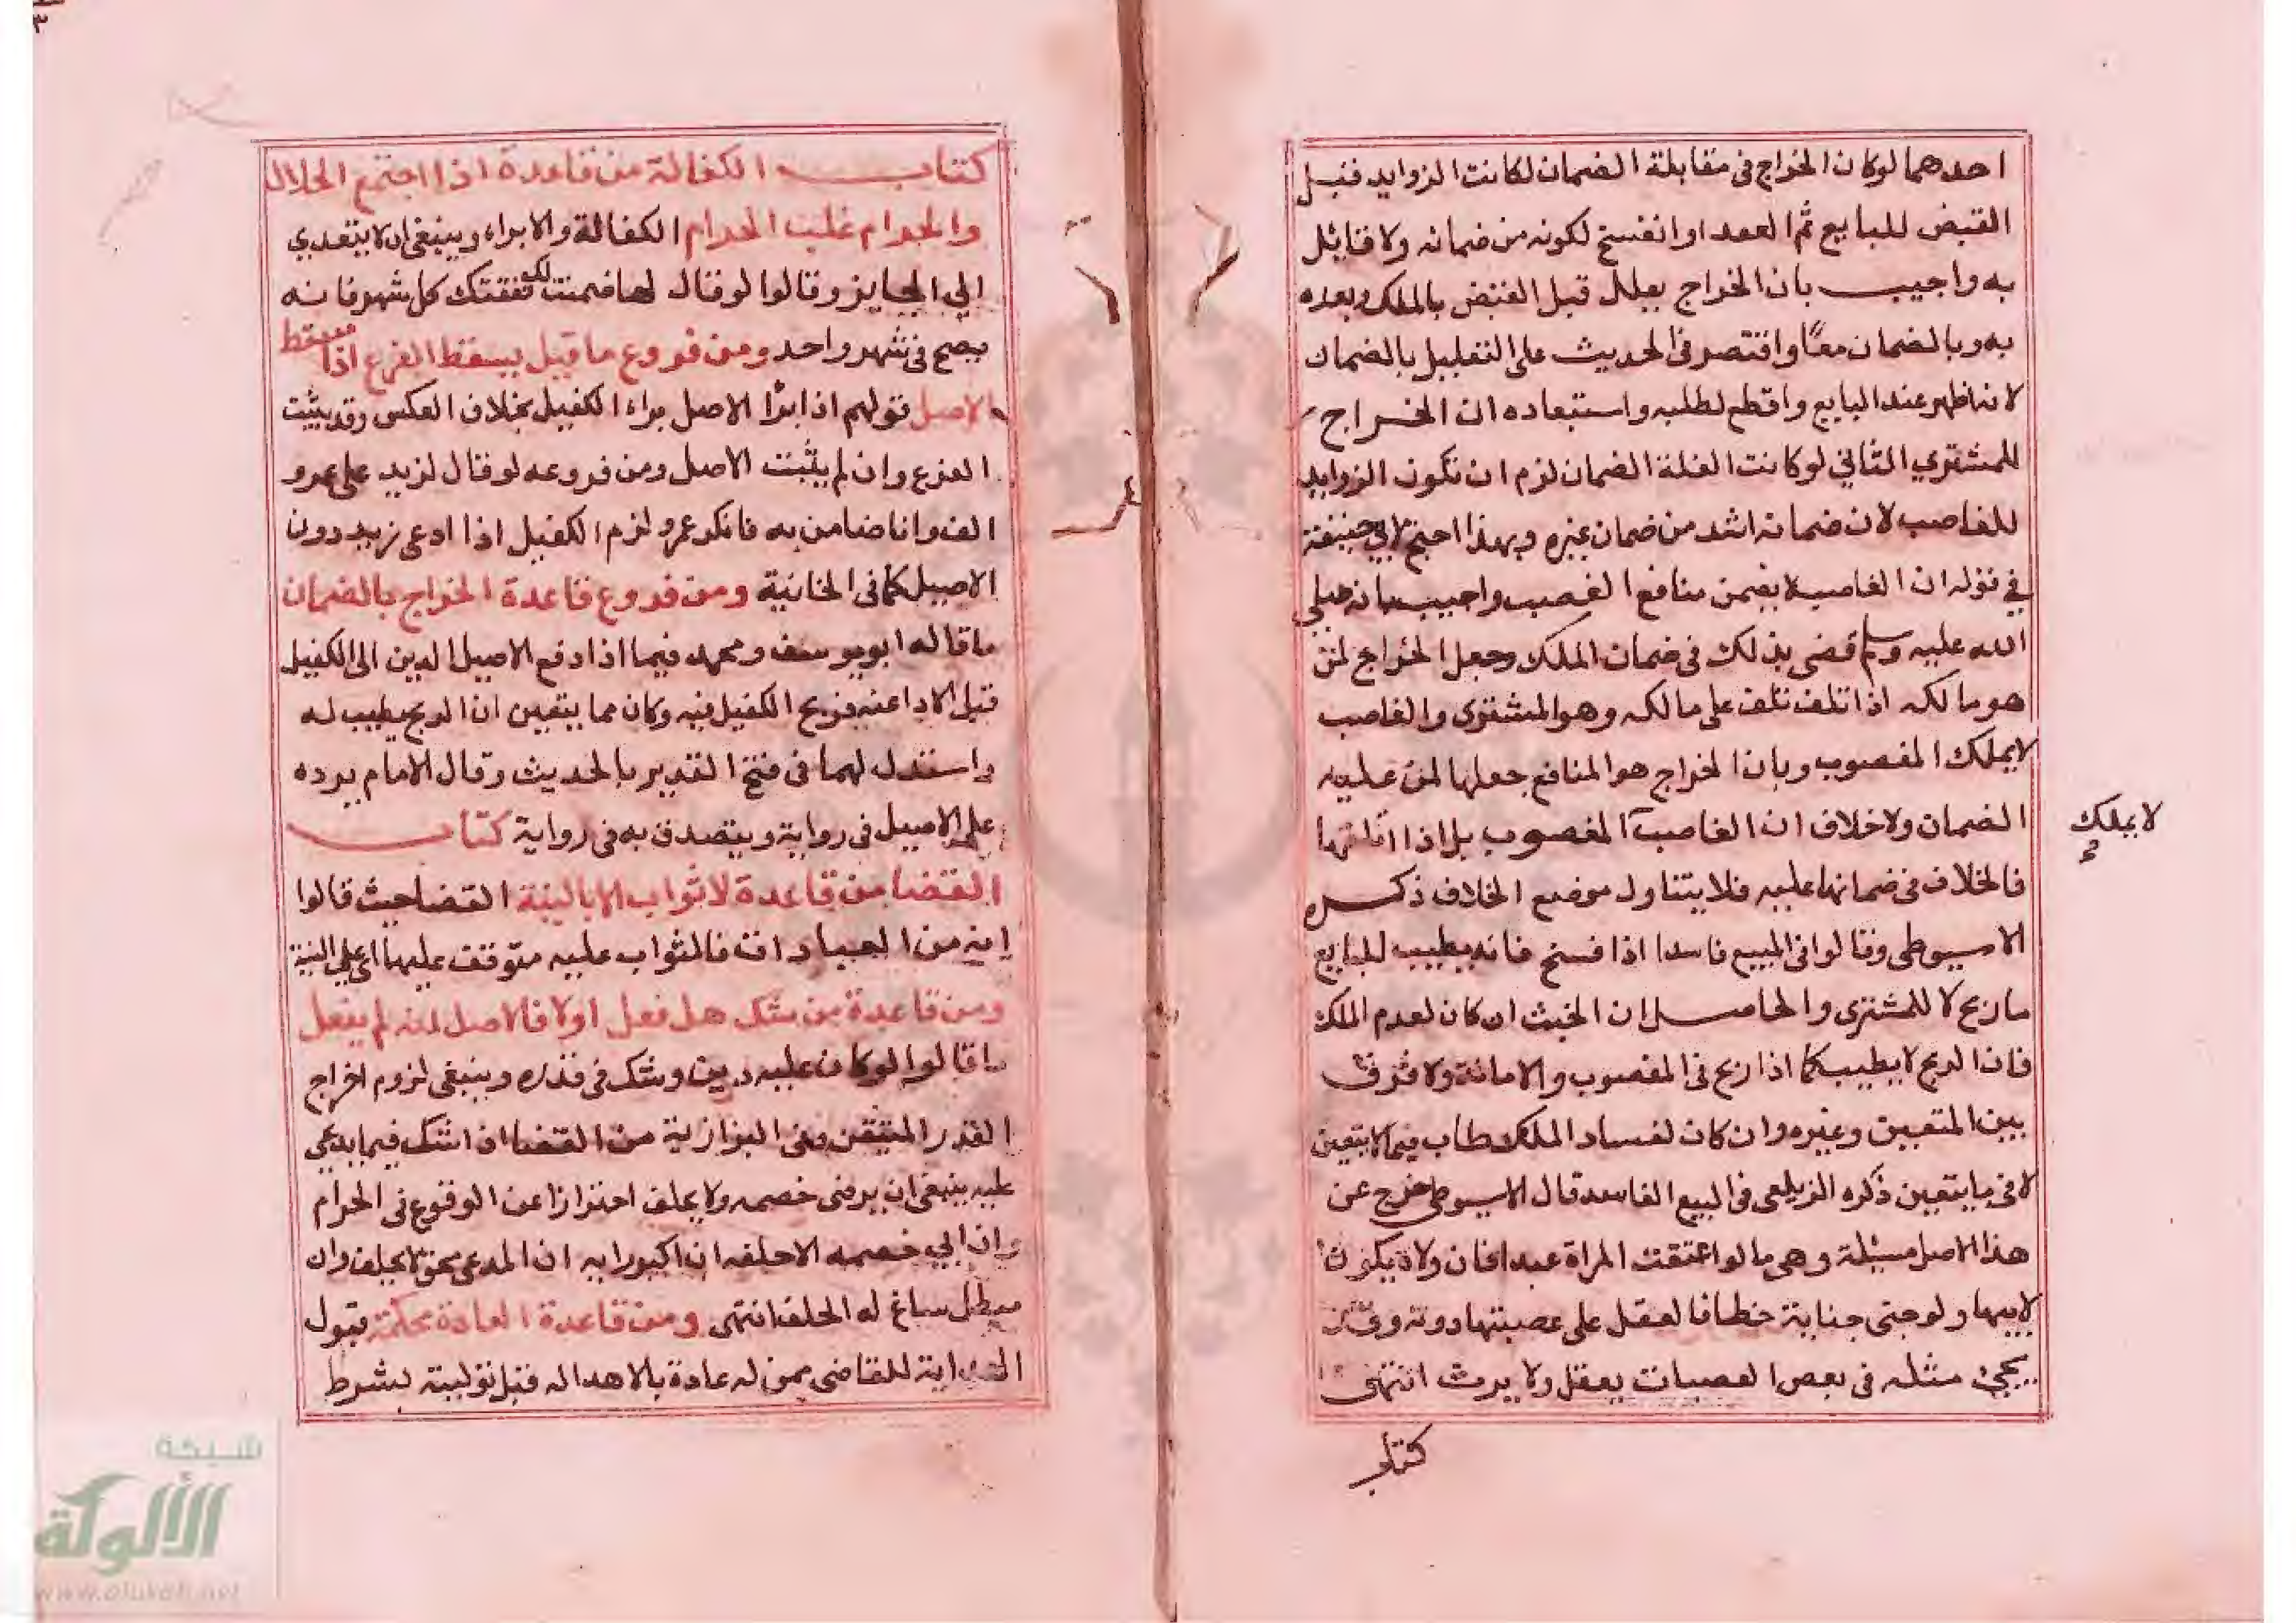 احدهما لوكان الخراج فى مقابلة الضمان لكانت الزوايد قبل
القبض للبايع تم العقد او انفسخ لكونه من ضمانه ولا قائل
به واجيب بان الخراج يعلل قبل القبض بالملك وبعده
به وبالضمان معًا واقتصر فى الحديث على التعليل بالضمان
لانه اظهر عند البايع واقطع لطلبه واستبعاده ان الخراج
للمشتري الثاني لوكانت الغلة الضمان لزم ان تكون الزوايد
للغاصب لان ضمانه اشد من ضمان غيره وبهذا احتج لابي حنيفة
في قوله ان الغاصب لا يضمن منافع الغصب واجيب بانه صلى
الله عليه وسلم قضى بذلك فى ضمان الملك وجعل الخراج لمن
هو مالكه اذا تلف تلف على مالكه وهو المشترى والغاصب
لا يملك المغصوب وبان الخراج هو المنافع جعلها لمن عليه
الضمان ولا خلاف ان الغاصب المغصوب بل اذا اتلفها
لا يملك
فالخلاف فى ضمانها عليه فلا يتناول موضع الخلاف ذكره
الاسيوطى وقالوا فى المبيع فاسدا اذا فسخ فانه يطيب للبايع
ما ربح لا للمشترى والحاصل ان الخبث ان كان لعدم الملك
فان الربح لا يطيب كما اذا ربح فى المغصوب والامانة ولا فرق
بين المتعين وغيره وان كان لفساد الملك طاب فيما لا يتعين
لا فى ما يتعين ذكره الزيلعى فى البيع الفاسد قال الاسيوطى خرج عن
هذا الاصل مسئلة وهى ما لو اعتقت المراة عبدا فان ولاه يكون
لابيها ولو جنى جناية خطا فالعقل على عصبتها دونه وقد
يجئ مثله فى بعض العصبات يعقل ولا يرث انتهى
كتاب
كتاب الكفالة من قاعدة اذا اجتمع الحلال
والحرام غلب الحرام الكفالة والابراء وينبغى ان لا يتعدي
الى الجايز وقالوا لو قال لها ضمنت لك نفقتك كل شهر فانه
يصح فى شهر واحد ومن فروع ما قيل يسقط الفرع اذا سقط
الاصل قولهم اذا ابرأ الاصل براء الكفيل بخلاف العكس وقد يثبت
الفرع وان لم يثبت الاصل ومن فروعه لو قال لزيد على عمرو
الف وانا ضامن به فانكر عمرو لزم الكفيل اذا ادعى زيد دون
الاصيل كما فى الخانية ومن فروع قاعدة الخراج بالضمان
ما قاله ابو يوسف ومحمد فيما اذا دفع الاصيل الدين الى الكفيل
قبل الادا عنه فربح الكفيل فيه وكان مما يتعين ان الربح يطيب له
واستدل لهما فى فتح القدير بالحديث وقال الامام يرده
على الاصيل فى رواية ويتصدق به فى رواية كتاب
القضا من قاعدة لا ثواب الا بالنية القضا حيث قالوا
انه من العبادات فالثواب عليه متوقف عليها اى على النية
ومن قاعدة من شك هل فعل اولا فالاصل انه لم يفعل
ما قالوا لو كان عليه دين وشك فى قدره وينبغى لزوم اخراج
القدر المتيقن وفى البزازية من القضا اذا شك فيما يدعى
عليه ينبغى ان يرضى خصمه ولا يحلف احترازا عن الوقوع فى الحرام
وان ابى خصمه الا حلفه ان اكبر رايه ان المدعى محق لا يحلف وان
مبطل ساغ له الحلف انتهى ومن قاعدة العادة محكمة قبول
الهداية للقاضى ممن له عادة بالاهدا له قبل توليته بشرط
شبكة
الألوكة
www.alukah.net